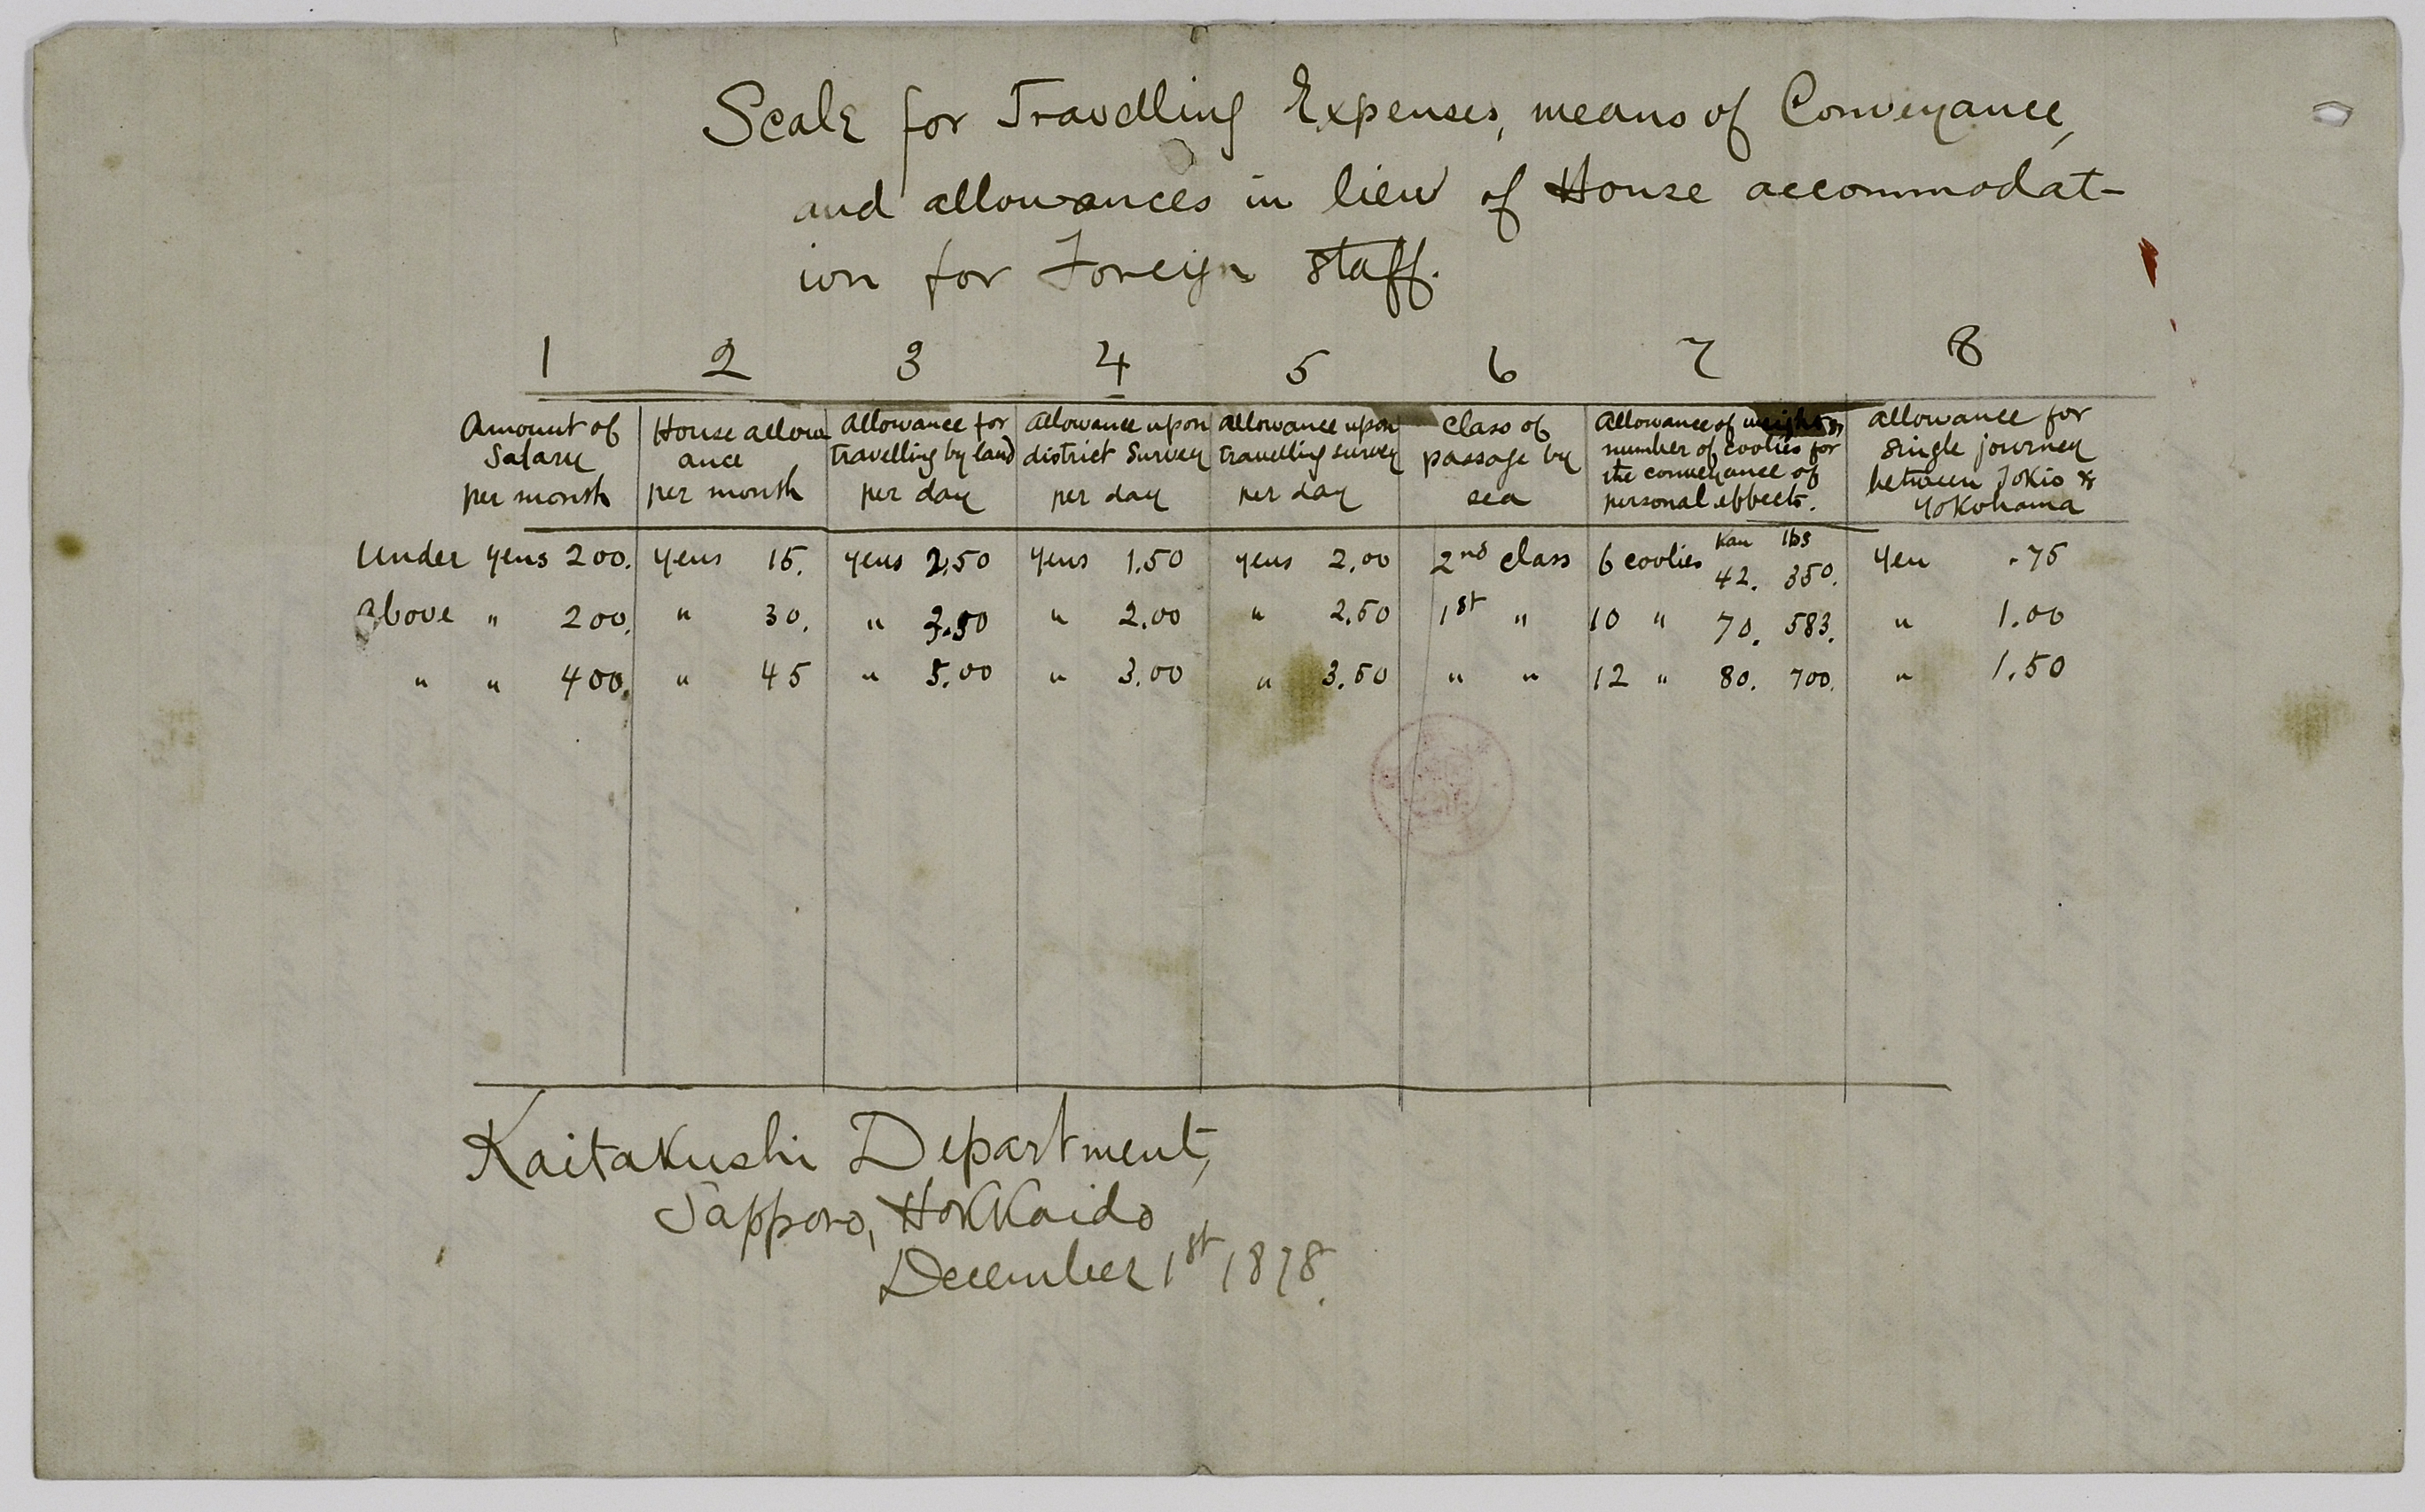 Scale for Travelling Expenses, means of Conveyance,
and allowances in lieu of House accommodat-
ion for Foreign staff.
1 2 3 4 5 6 7 8
Amount of Salary per month
House allow ance per month
Allowance for travelling by land per day
Allowance upon district Survey per day
Allowance upon travelling survey per day
Class of passage by sea
Allowance of weight or number of coolies for the conveyance of personal effects.
allowance for single journey between Tokio & Yokohama
Kan lbs
Under yens 200. yens 15. yens 2.50 yens 1.50 yens 2.00 2nd class 6 coolies 42. 350. yen .75
Above " 200. " 30. " 3.50 " 2.00 " 2.50 1st " 10 " 70. 583. " 1.00
" " 400. " 45 " 5.00 " 3.00 " 3.50 " " 12 " 80. 700. " 1.50
Kaitakushi Department,
Sapporo, Hokkaido
December 1st 1878.